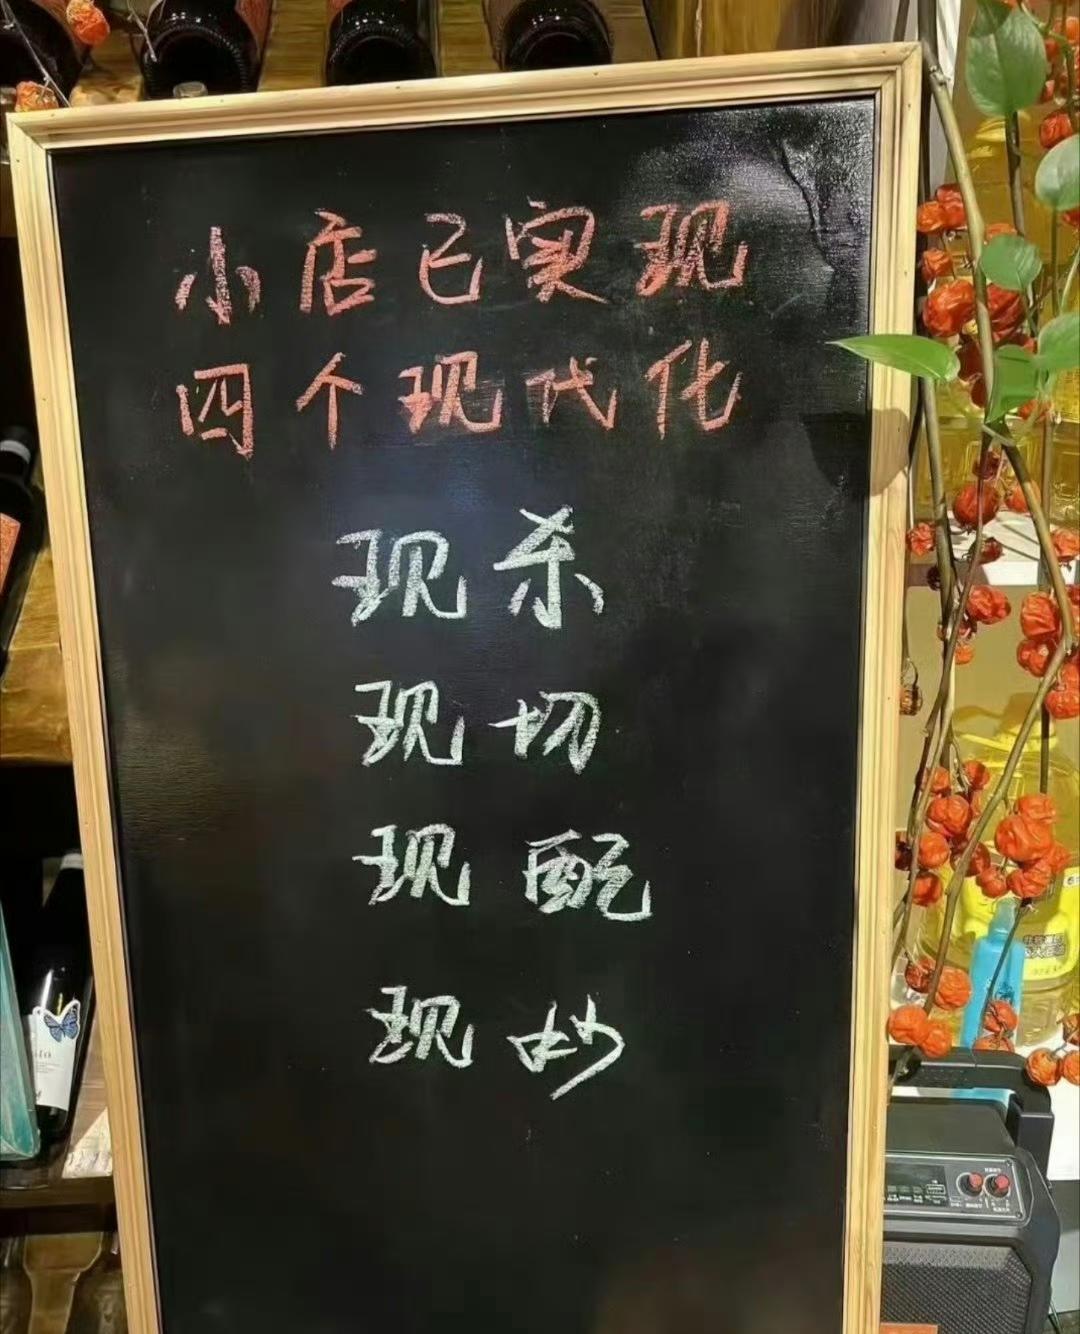 小店已实现
四个现代化
现杀
现切
现配
现炒